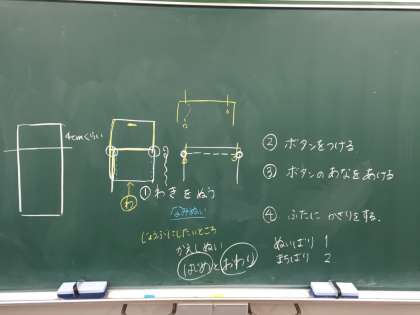 4cmくらい
わ
① わきをぬう
なみぬい
じょうぶにしたいところ
かえしぬい
はじめとおわり
② ボタンをつける
③ ボタンのあなをあける
④ ふたに かざりをする.
ぬいばり 1
まちばり 2